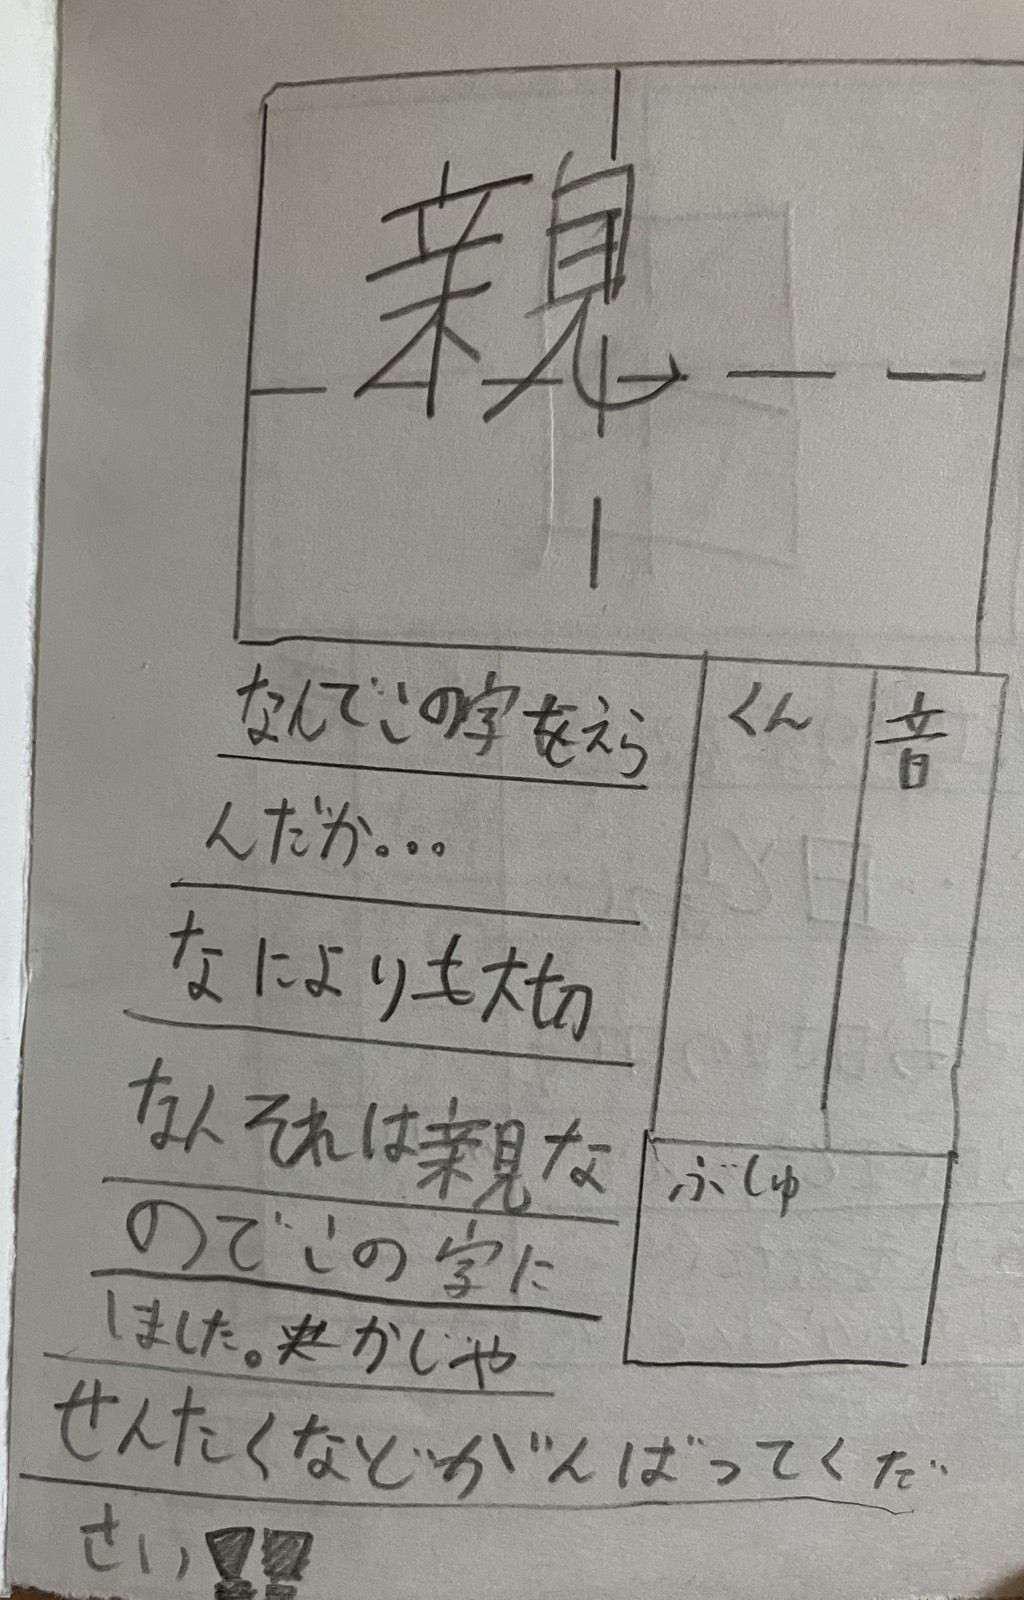 親
くん
音
ぶしゅ
なんでこの字をえら
んだか。..
なによりも大切
なんそれは親な
のでこの字に
しました。かじや
せんたくなどがんばってくだ
さい!!